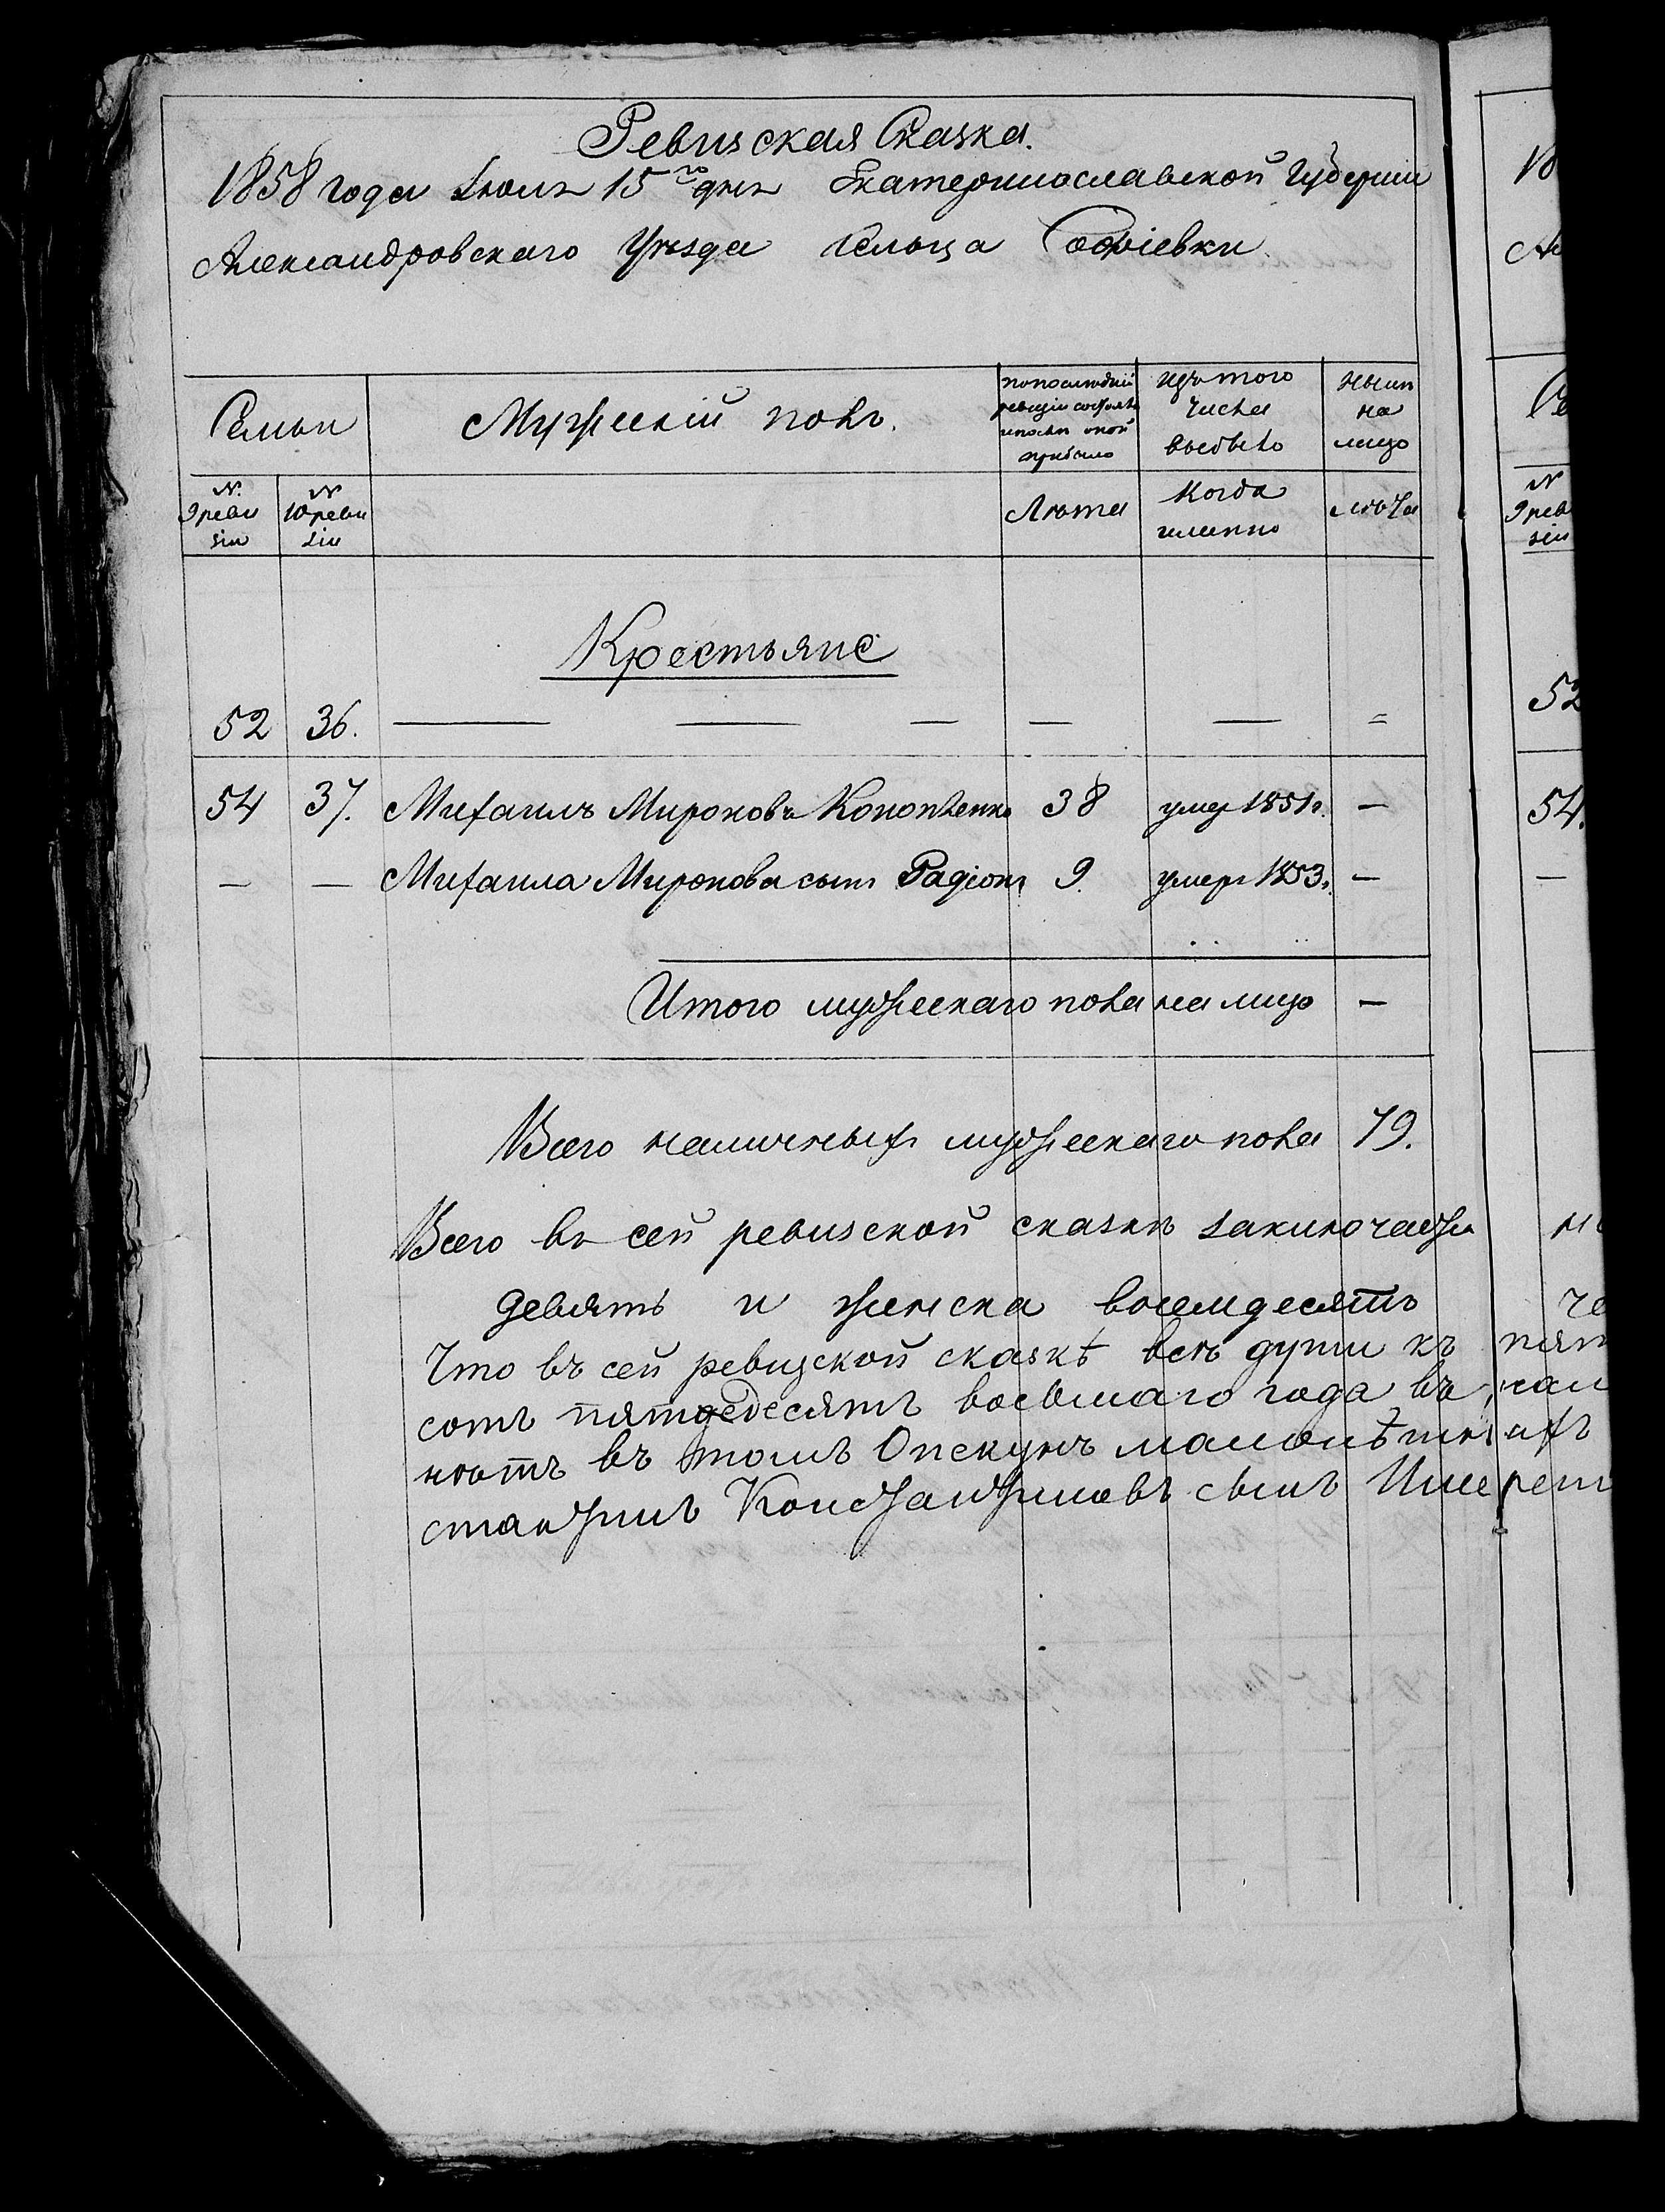 Ревизская Сказка.
1858 года Июля 15го дня Екатеринославской Губерніи
Александровскаго Уѣзда Сельца Софіевки.
Семьи
Мужескій полъ.
по послѣдней ревизіи состояло и послѣ оной прибыло
изъ того числа выбыло
нынѣ на лицо
N. 9 ревизіи
N 10 ревизіи
Лѣта
Когда именно
Лѣта
Крестьяне
52 36. — — — — — =
54 37. Михаилъ Мироновъ Кононенко 38 умер 1851г. —
— — Михаила Миронова сынъ Радіонъ 9. умеръ 1853г. —
Итого мужескаго пола на лицо —
Всего наличныхъ мужескаго пола 79.
Всего въ сей ревизской сказкѣ заключается
девять и женска восемдесятъ
Что въ сей ревизской сказкѣ всѣ души къ
сотъ пятдедесятъ восьмаго года въ
нѣтъ въ томъ Опекунъ малолѣтн
стантинъ Константиновъ сынъ Име
18
52
54.
—